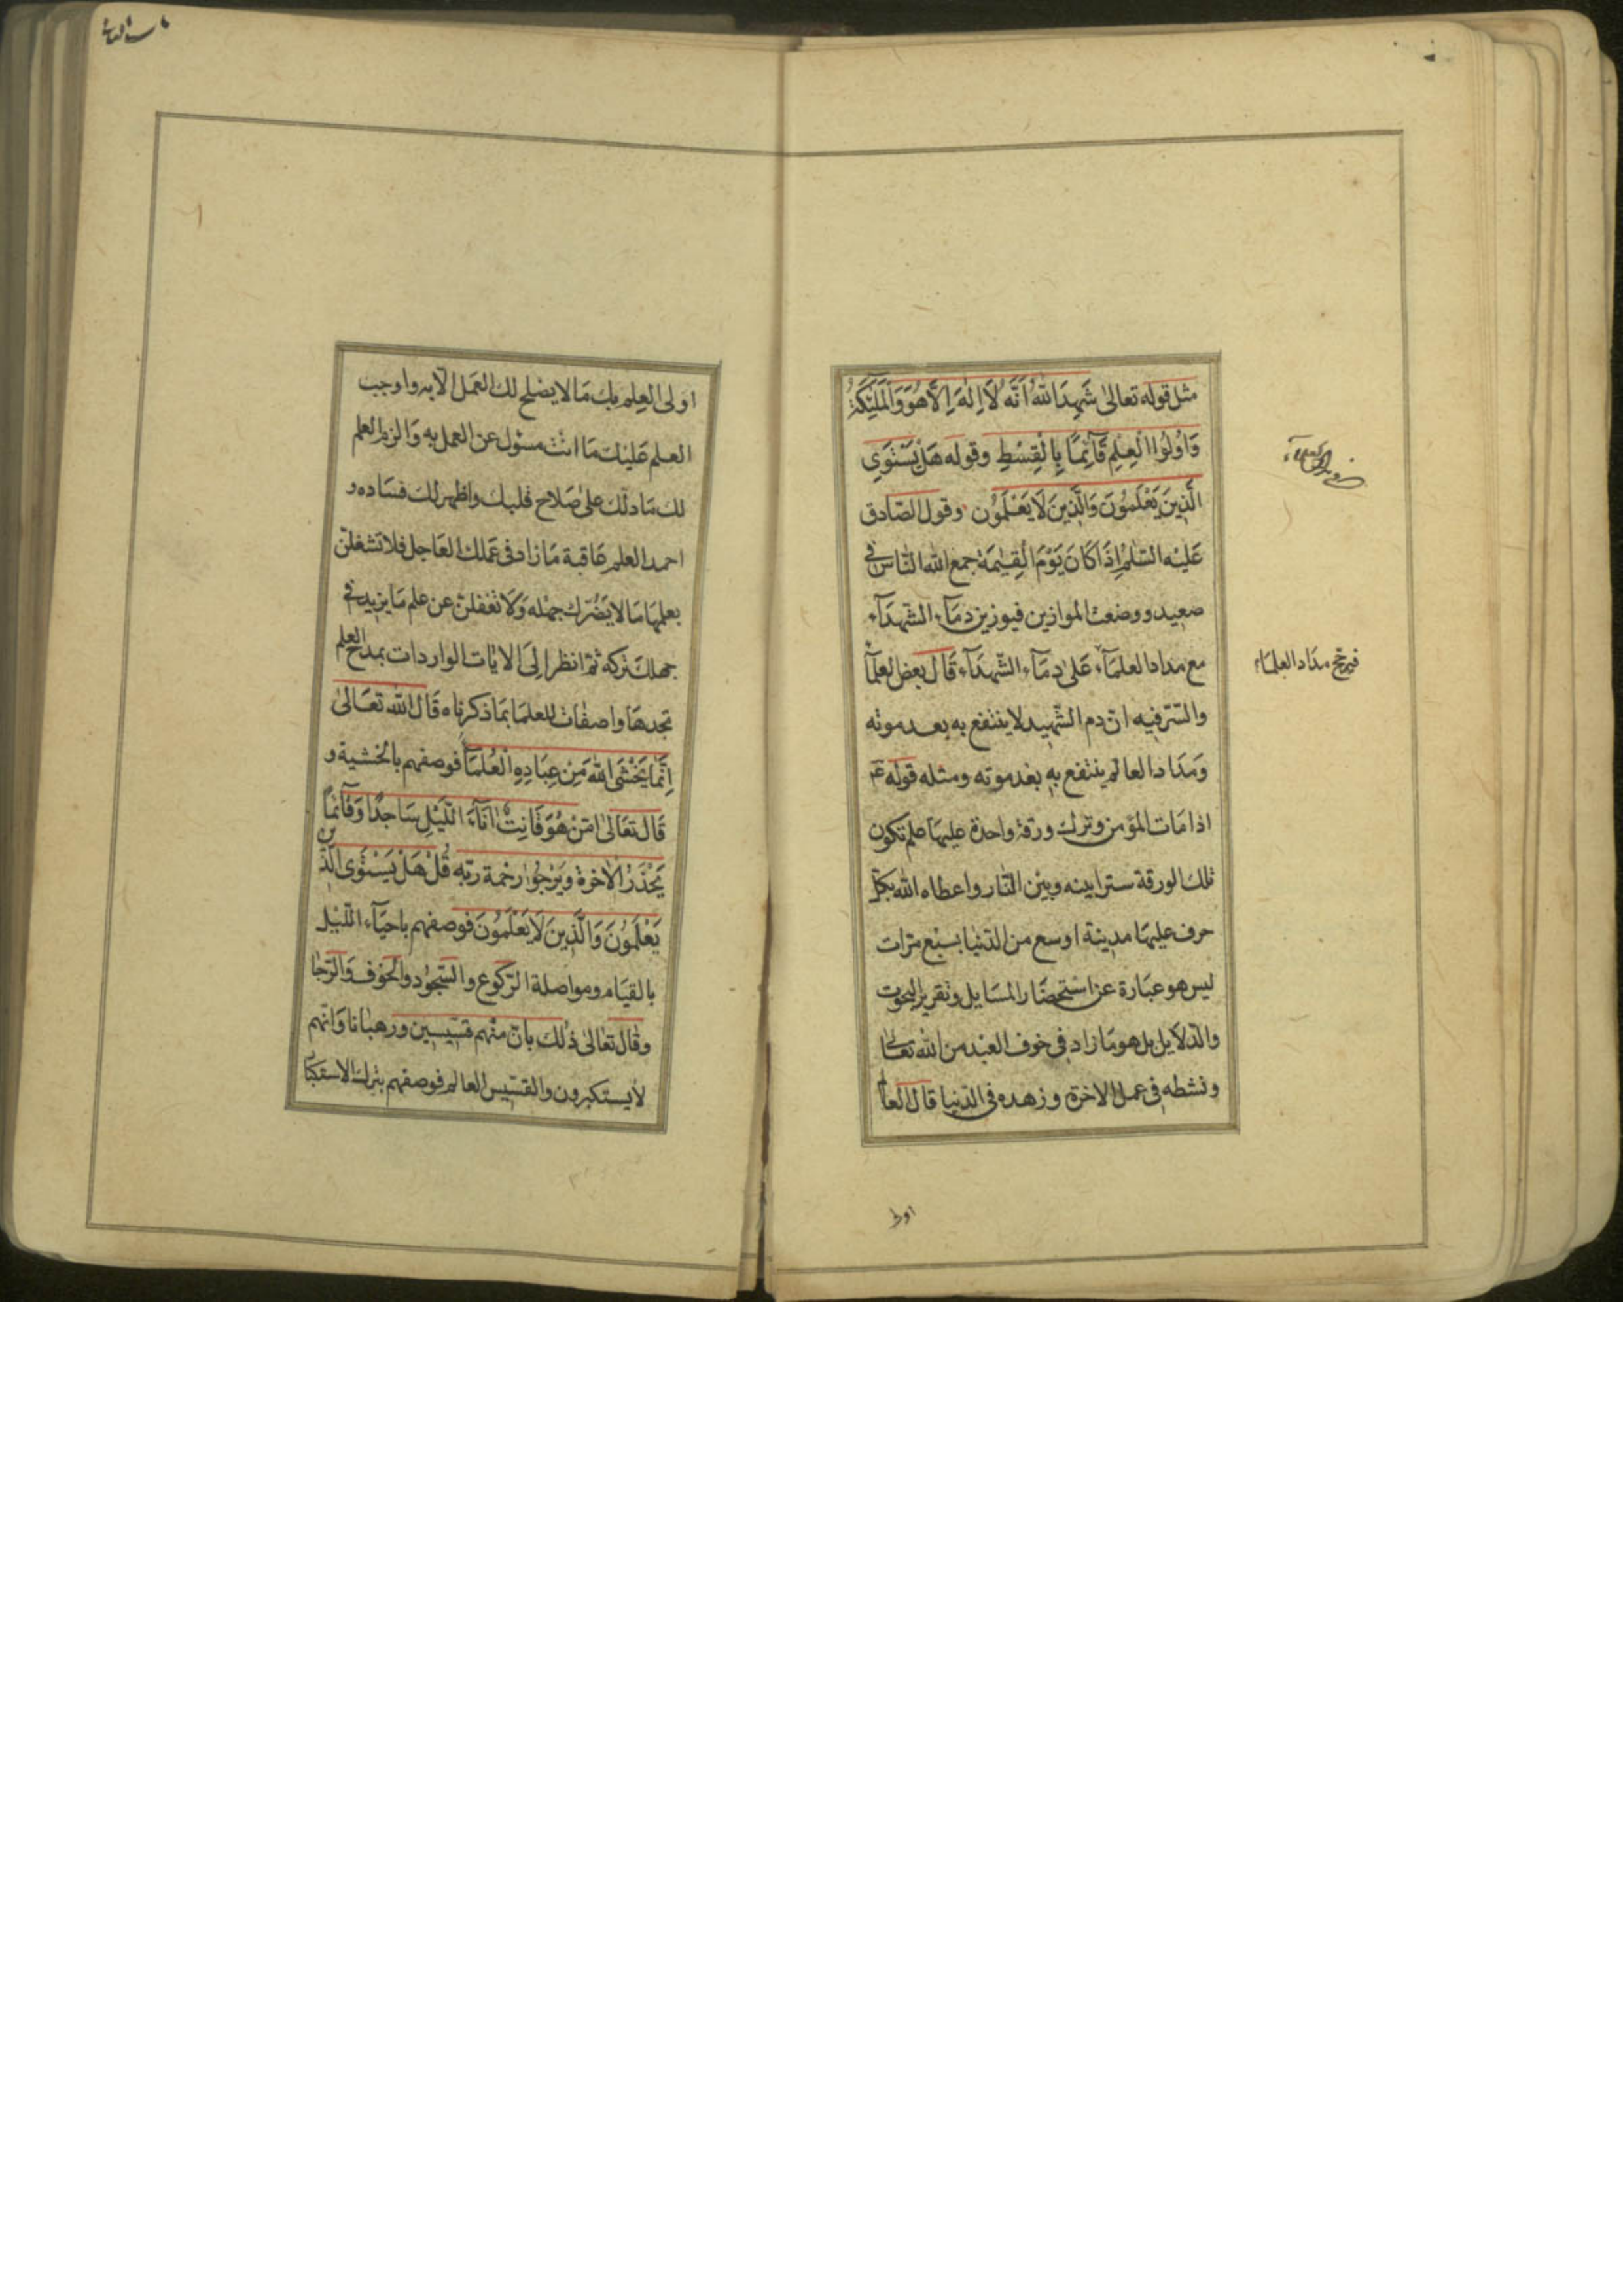 مثل قوله تعالى شَهِدَ اللهُ اَنَّهُ لَا اِلٰهَ اِلَّا هُوَ وَالْمَلٰئِكَةُ
وَاُولُوا الْعِلْمِ قَآئِمًا بِالْقِسْطِ وقوله هَلْ يَسْتَوِى
الَّذِينَ يَعْلَمُونَ وَالَّذِينَ لَا يَعْلَمُونَ وقول الصّادق
عَلَيْه السّلم اِذَا كَانَ يَوْمَ الْقِيٰمَة جمع الله النّاس فى
صعيد ووضعت الموازين فيوزن دمَآء الشّهدَآء
مع مداد العلمَآء عَلىٰ دِمَآء الشّهدَآء قَالَ بعض العلمآ
والسّر فيه انّ دم الشّهيد لا ينتفع به بعد موته
وَمدَاد العالم ينتفع به بعد موته ومثله قوله عم
اذا مَات المؤمن وترك ورقة واحدة عليهَا علم تكون
تلك الورقة سترا بينه وبين النّار واعطاه الله بكلّ
حرف عليهَا مدينة اوسع من الدّنيَا بسَبْع مرّات
ليس هو عبَارة عن اسْتحضَار المسَايل وتقرير البحوث
والدّلايل بل هو مَا زاد فى خوف العَبْد من الله تعالى
ونشطه فى عمل الاخرة وزهده فى الدّنيا قال العا
فيرجح مدَاد العلمَاء
اولى
اولى العِلم بك مَا لا يصْلح لك العَمل الّا به واوجب
العلم عَليْك مَا انْت مسئول عن العمل به وَالزم العلم
لك مَا دلّك علىٰ صَلاح قلبك واظهر لك فسَاده و
احمد العلم عَاقبة مَا زاد فى عَملك العَاجل فلا تشغلنّ
بعلمهَا مَا لا يَضُرّك جهْله وَلَا تغفلنّ عن علم مَا يزيد فى
جهلك تركه ثمّ انظر اِلىَ الايَات الواردات بمدح العلم
تجدهَا واصفات للعلمَا بمَا ذكرناه قَالَ الله تعَالىٰ
اِنَّمَا يَخْشَى اللهَ مِنْ عِبَادِهِ الْعُلَمَآ فوصفهم بالخشية و
قَالَ تعَالىٰ اَمَّنْ هُوَ قَانِتٌ اٰنَآءَ الّلَيْلِ سَاجدًا وَقَآئمًا
يَحْذَرُ الْاخرةَ وَيَرْجُوا رَحْمة ربّه قُلْ هَلْ يَسْتَوِى الّذين
يَعْلَمُونَ وَالَّذِينَ لَا يَعْلَمُونَ فوصفهم باحيَآء اللّيْل
بالقيَام ومواصلة الرّكوع والسّجُود والخوف وَالرّجَا
وقَالَ تعَالىٰ ذٰلك بانّ منْهم قسّيسين ورهبَانا وَانّهم
لا يستكبرون والقسّيس العالم فوصفهم بترك الاستكبا